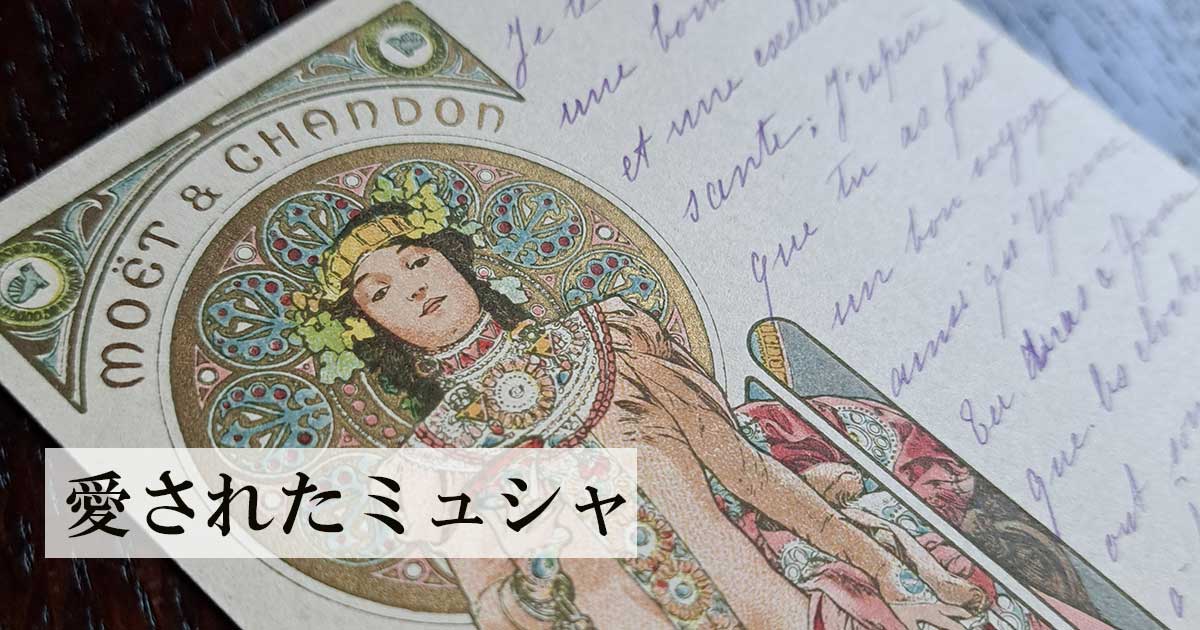 MOËT & CHANDON
Je te
une bon
et une excellen
sante; J'espère
que tu as fait
un bon voyage
ainsi qu'Yvonne
tu diras à
que les
ont
愛されたミュシャ